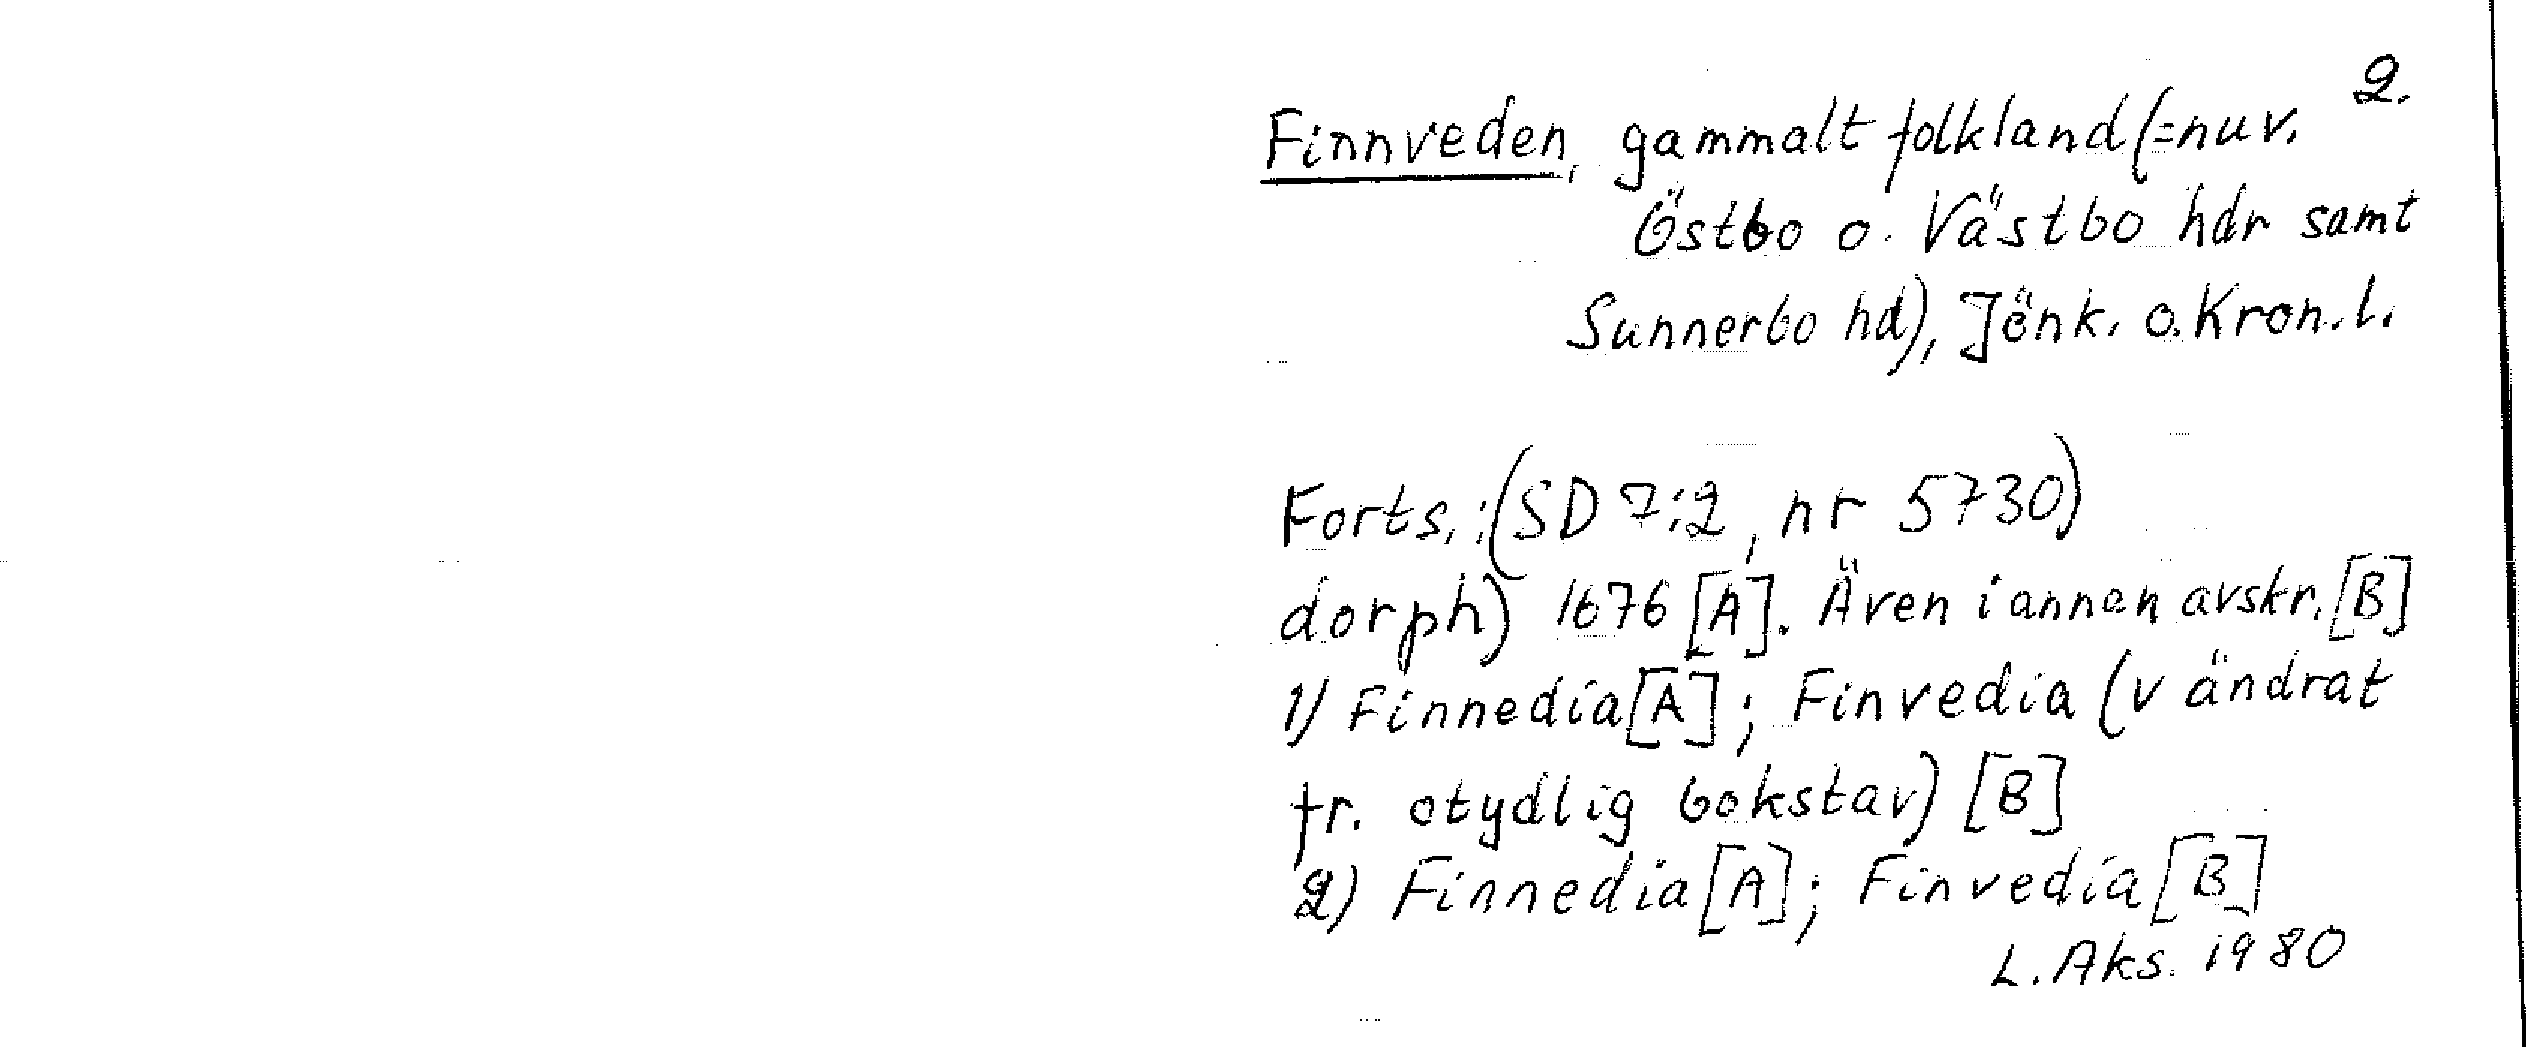 2.
Finnveden, gammalt folkland (=nuv.
Östbo o. Västbo hdr samt
Sunnerbo hd), Jönk. o. Kron. l.
Forts.: (SD 7:2, nr 5730)
dorph) 1676 [A]. Även i annan avskr. [B]
1) Finnedia [A]; Finvedia (v ändrat
fr. otydlig bokstav) [B]
2) Finnedia [A]; Finvedia [B]
L. Aks. 1980